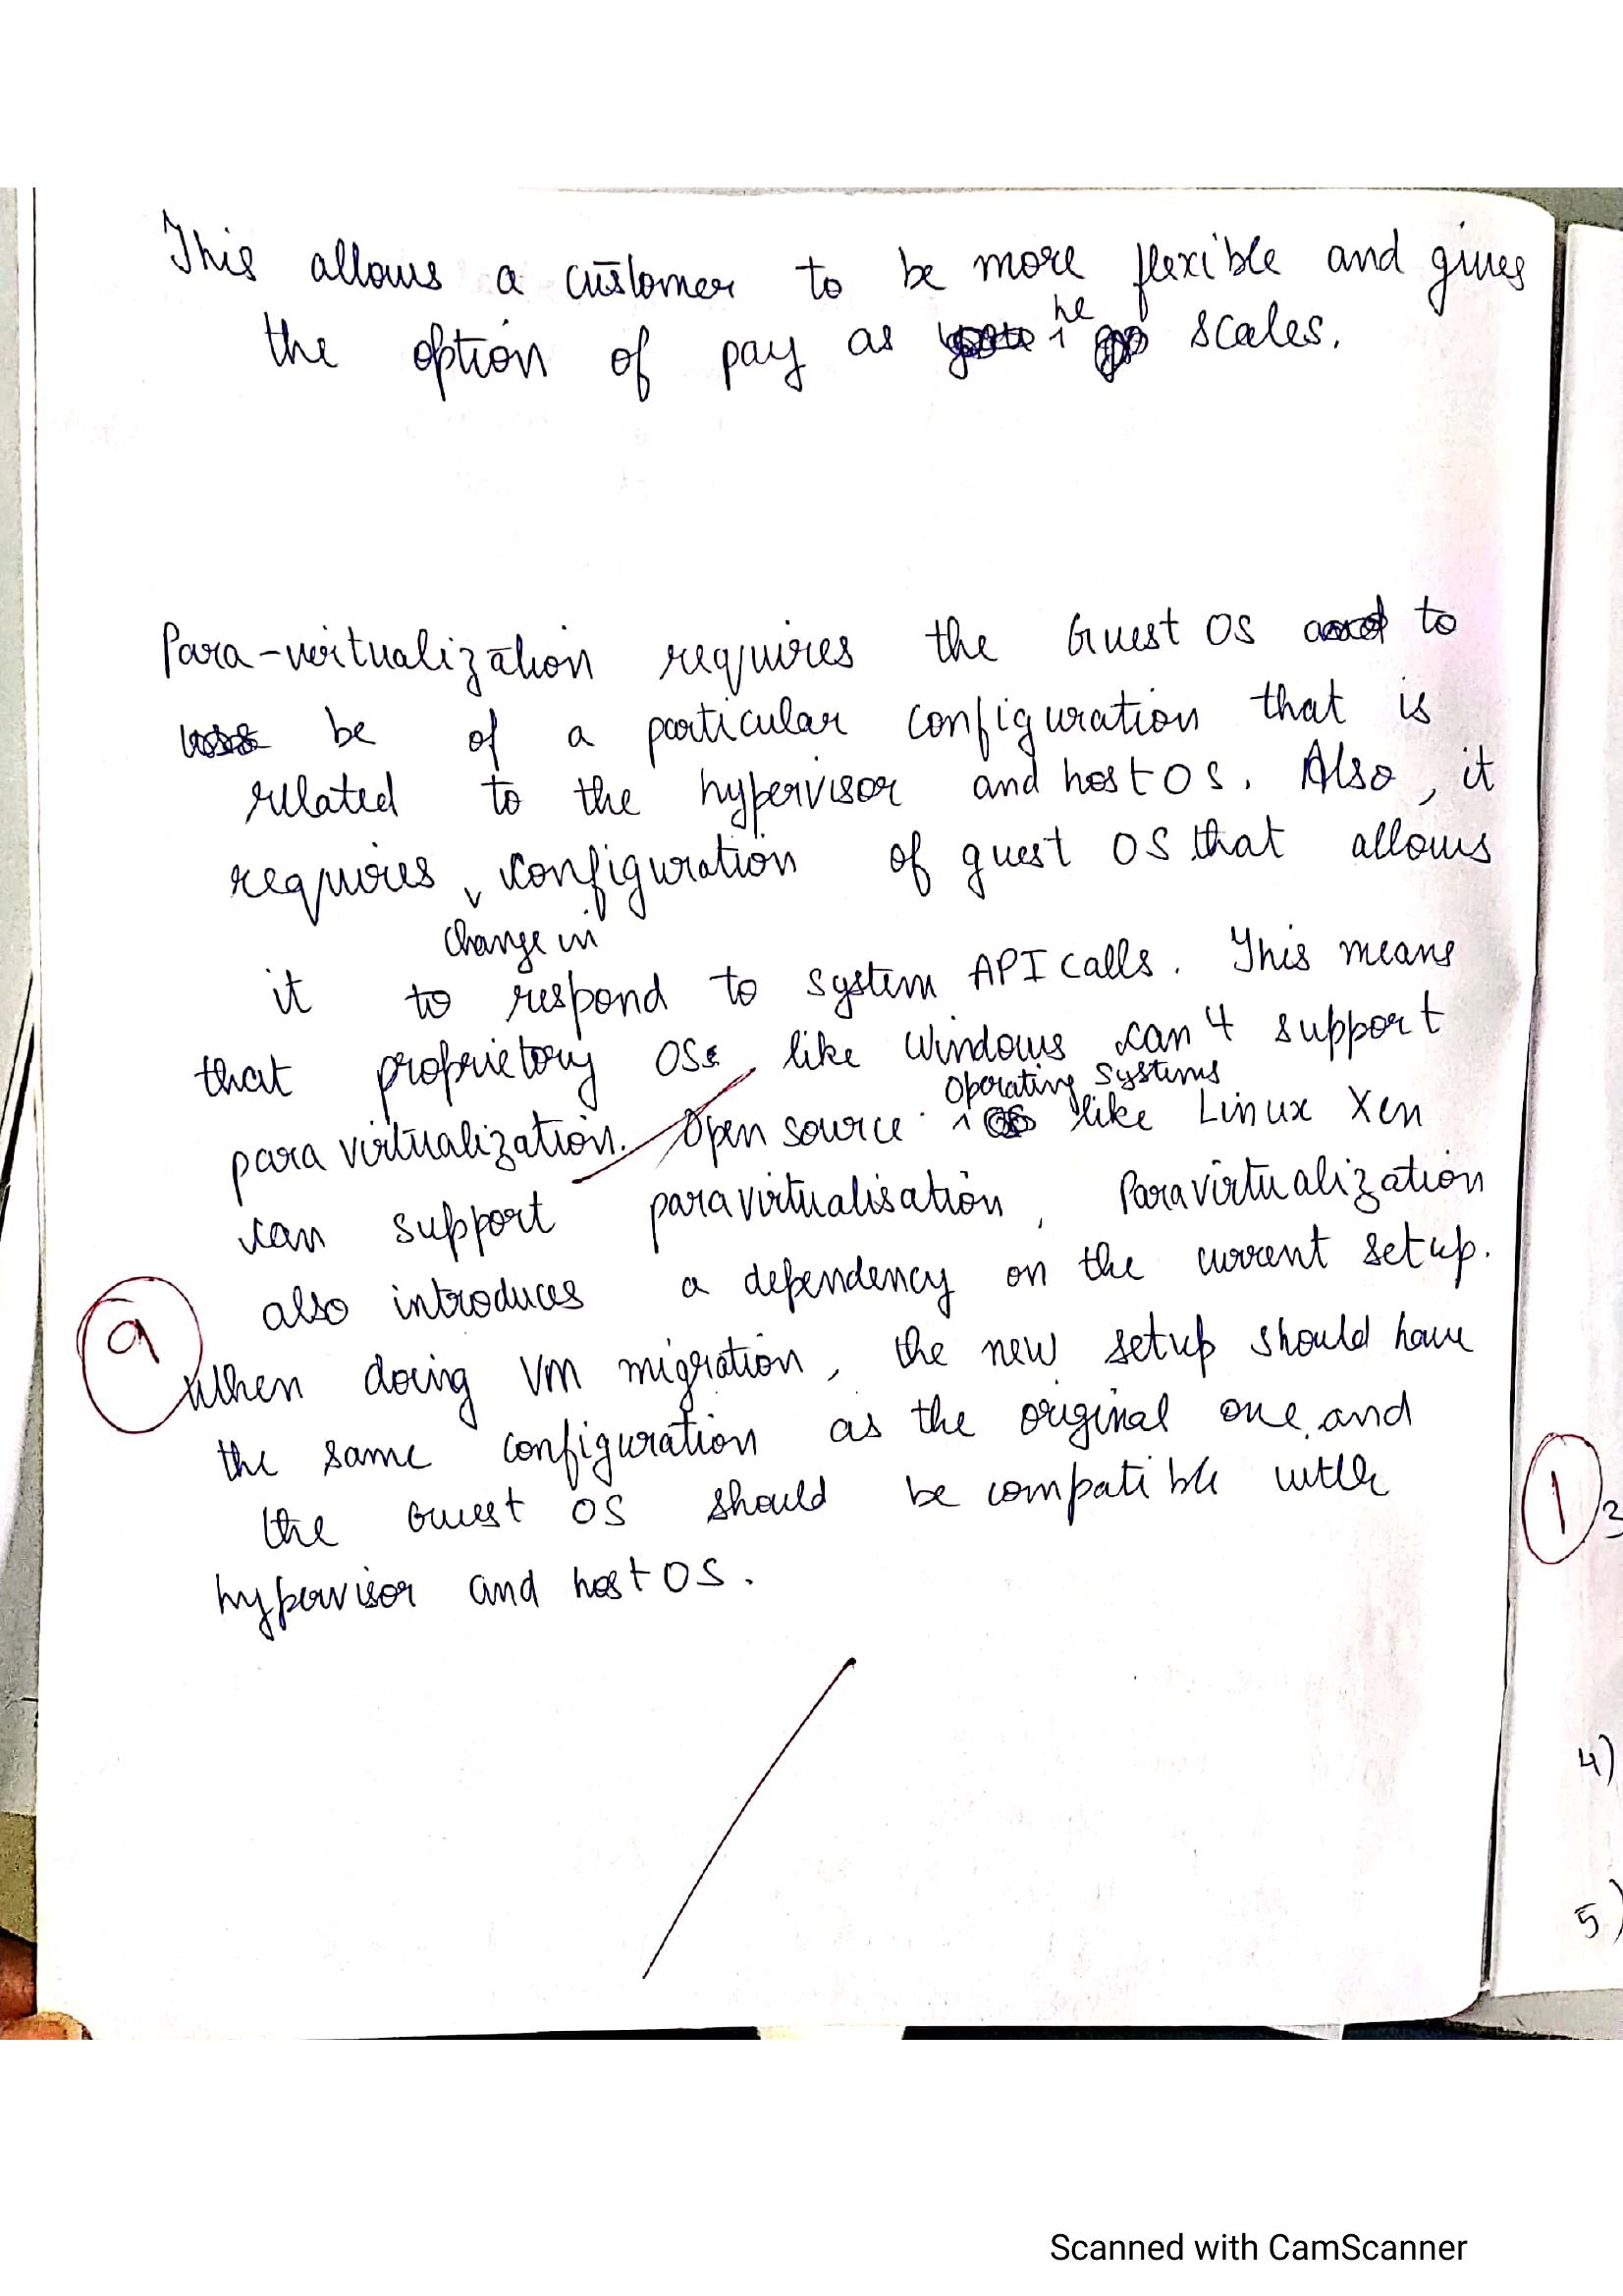 This allows a customer to be more flexible and gives
the option of pay as he scales.
Para-virtualization requires the Guest OS to
be of a particular configuration that is
related to the hypervisor and host OS. Also, it
requires change in configuration of guest OS that allows
it to respond to system API calls. This means
that proprietory OSs like Windows can't support
para virtualization. Open source Operating Systems like Linux Xen
can support paravirtualisation. Paravirtualization
also introduces a dependency on the current setup.
When doing VM migration, the new setup should have
the same configuration as the original one and
the Guest OS should be compatible with
hypervisor and host OS.
1
3
4)
5)
Scanned with CamScanner